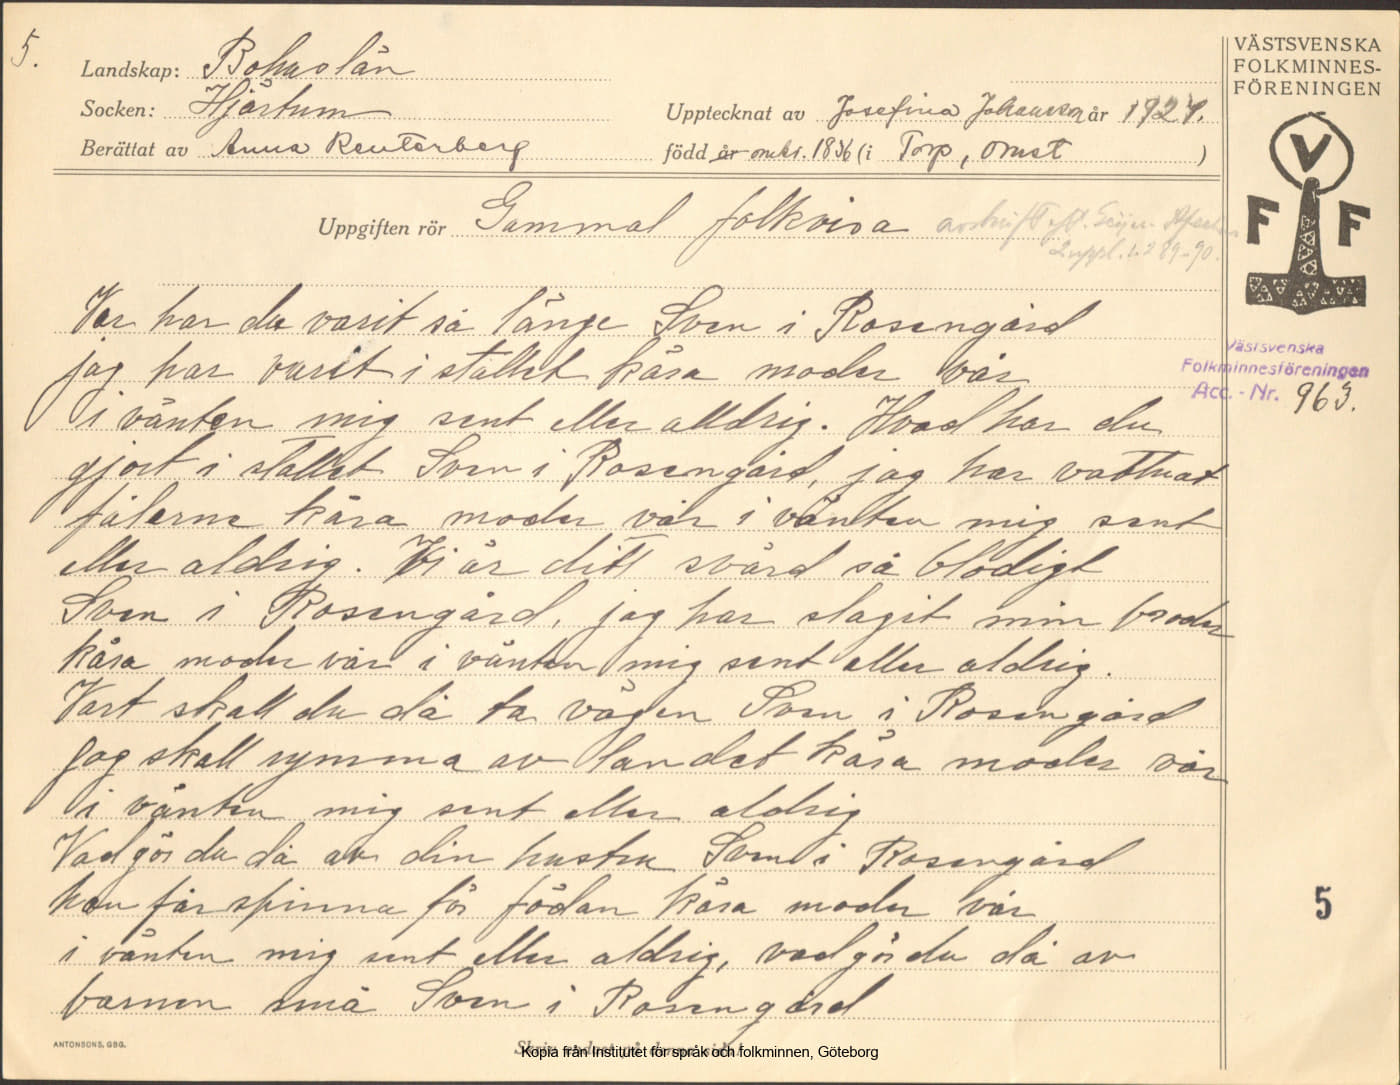 5.
Landskap: Bohuslän
Socken: Hjärtum
Berättat av Anna Reuterberg
Upptecknat av Josefina Johansson år 1927.
född år omkr. 1836 (i Torp, Omst )
VÄSTSVENSKA
FOLKMINNES-
FÖRENINGEN
V
F F
Uppgiften rör Gammal folkvisa
Suppl. 289-90.
Var har du varit så länge Sven i Rosengård
jag har varit i stallet kära moder vår
i vänten mig sent eller alldrig. Hvad har du
gjort i stallet Sven i Rosengård, jag har vattnat
fålerne kära moder vår i vänten mig sent
eller aldrig. Vi är ditt svärd så blodigt
Sven i Rosengård, jag har slagit min broder
kära moder vår i vänten mig sent eller aldrig.
Vart skall du då ta vägen Sven i Rosengård
jag skall rymma av landet kära moder vår
i vänten mig sent eller aldrig
Vad gör du då av din hustru Sven i Rosengård
hon får spinna för födan kära moder vår
i vänten mig sent eller aldrig, vad gör du då av
barnen små Sven i Rosengård
Västsvenska
Folkminnesföreningen
Acc. - Nr. 963.
5
ANTONSONS, GBG.
Skriv endast på denna sida!
Kopia från Institutet för språk och folkminnen, Göteborg